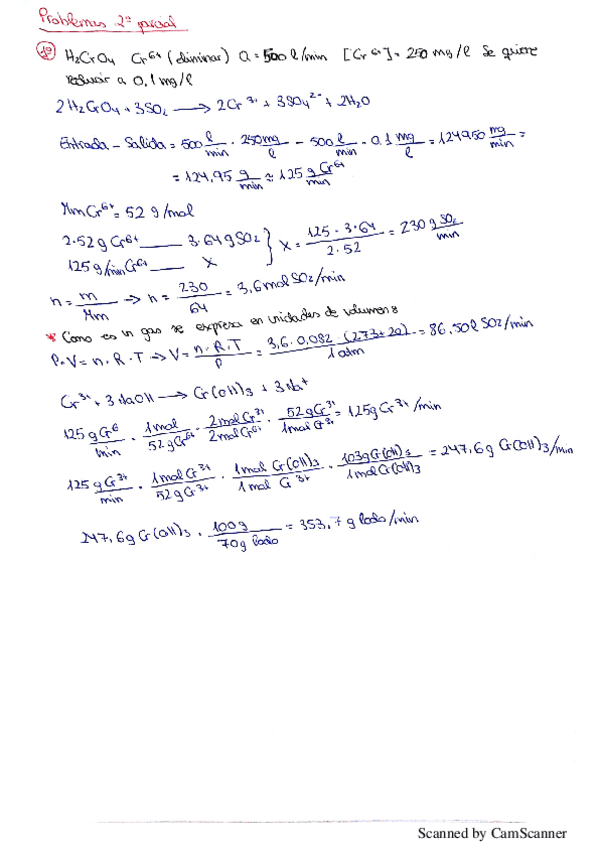 Problemas 2º parcial
1º H₂CrO₄ Cr⁶⁺ (eliminar) Q = 500 l/min [Cr⁶⁺] = 250 mg/l Se quiere
reducir a 0,1 mg/l
2 H₂CrO₄ + 3SO₂ → 2Cr³⁺ + 3SO₄²⁻ + 2H₂O
Entrada - Salida = 500 l/min · 250 mg/l - 500 l/min · 0,1 mg/l = 124950 mg/min =
= 124,95 g/min ≈ 125 g Cr⁶⁺/min
Mm Cr⁶⁺ = 52 g/mol
2·52 g Cr⁶⁺ ___ 3·64 g SO₂ } X = 125·3·64 / 2·52 = 230 g SO₂/min
125 g/min Cr⁶⁺ ___ X
n = m/Mm → n = 230/64 = 3,6 mol SO₂/min
* Como es un gas se expresa en unidades de volumen:
P·V = n·R·T → V = n·R·T/P = 3,6·0,082·(273+20)/1 atm = 86,50 l SO₂/min
Cr³⁺ + 3 NaOH → Cr(OH)₃ + 3 Na⁺
125 g Cr⁶/min · 1 mol/52 g Cr⁶⁺ · 2 mol Cr³⁺/2 mol Cr⁶⁺ · 52 g Cr³⁺/1 mol Cr³⁺ = 125 g Cr³⁺/min
125 g Cr³⁺/min · 1 mol Cr³⁺/52 g Cr³⁺ · 1 mol Cr(OH)₃/1 mol Cr³⁺ · 103 g Cr(OH)₃/1 mol Cr(OH)₃ = 247,6 g Cr(OH)₃/min
247,6 g Cr(OH)₃ · 100 g/70 g lodo = 353,7 g lodo/min
Scanned by CamScanner